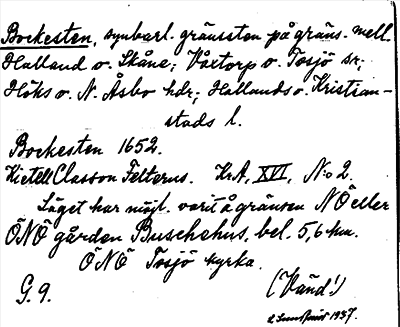 Bockesten, synbarl. gränssten på gräns. mell.
Halland o. Skåne; Våxtorp o. Tosjö sr;
Höks o. N. Åsbo hdr; Hallands o. Kristian-
stads l.
Bockesten 1652.
Kietell Classon Felterus. KrA, XVI, N:o 2.
Läget har möjl. varit å gränsen NÖ eller
ÖNÖ gården Buschehus, bel. 5,6 km.
ÖNÖ Tosjö kyrka.
G. 9.
(Vänd!)
1937.